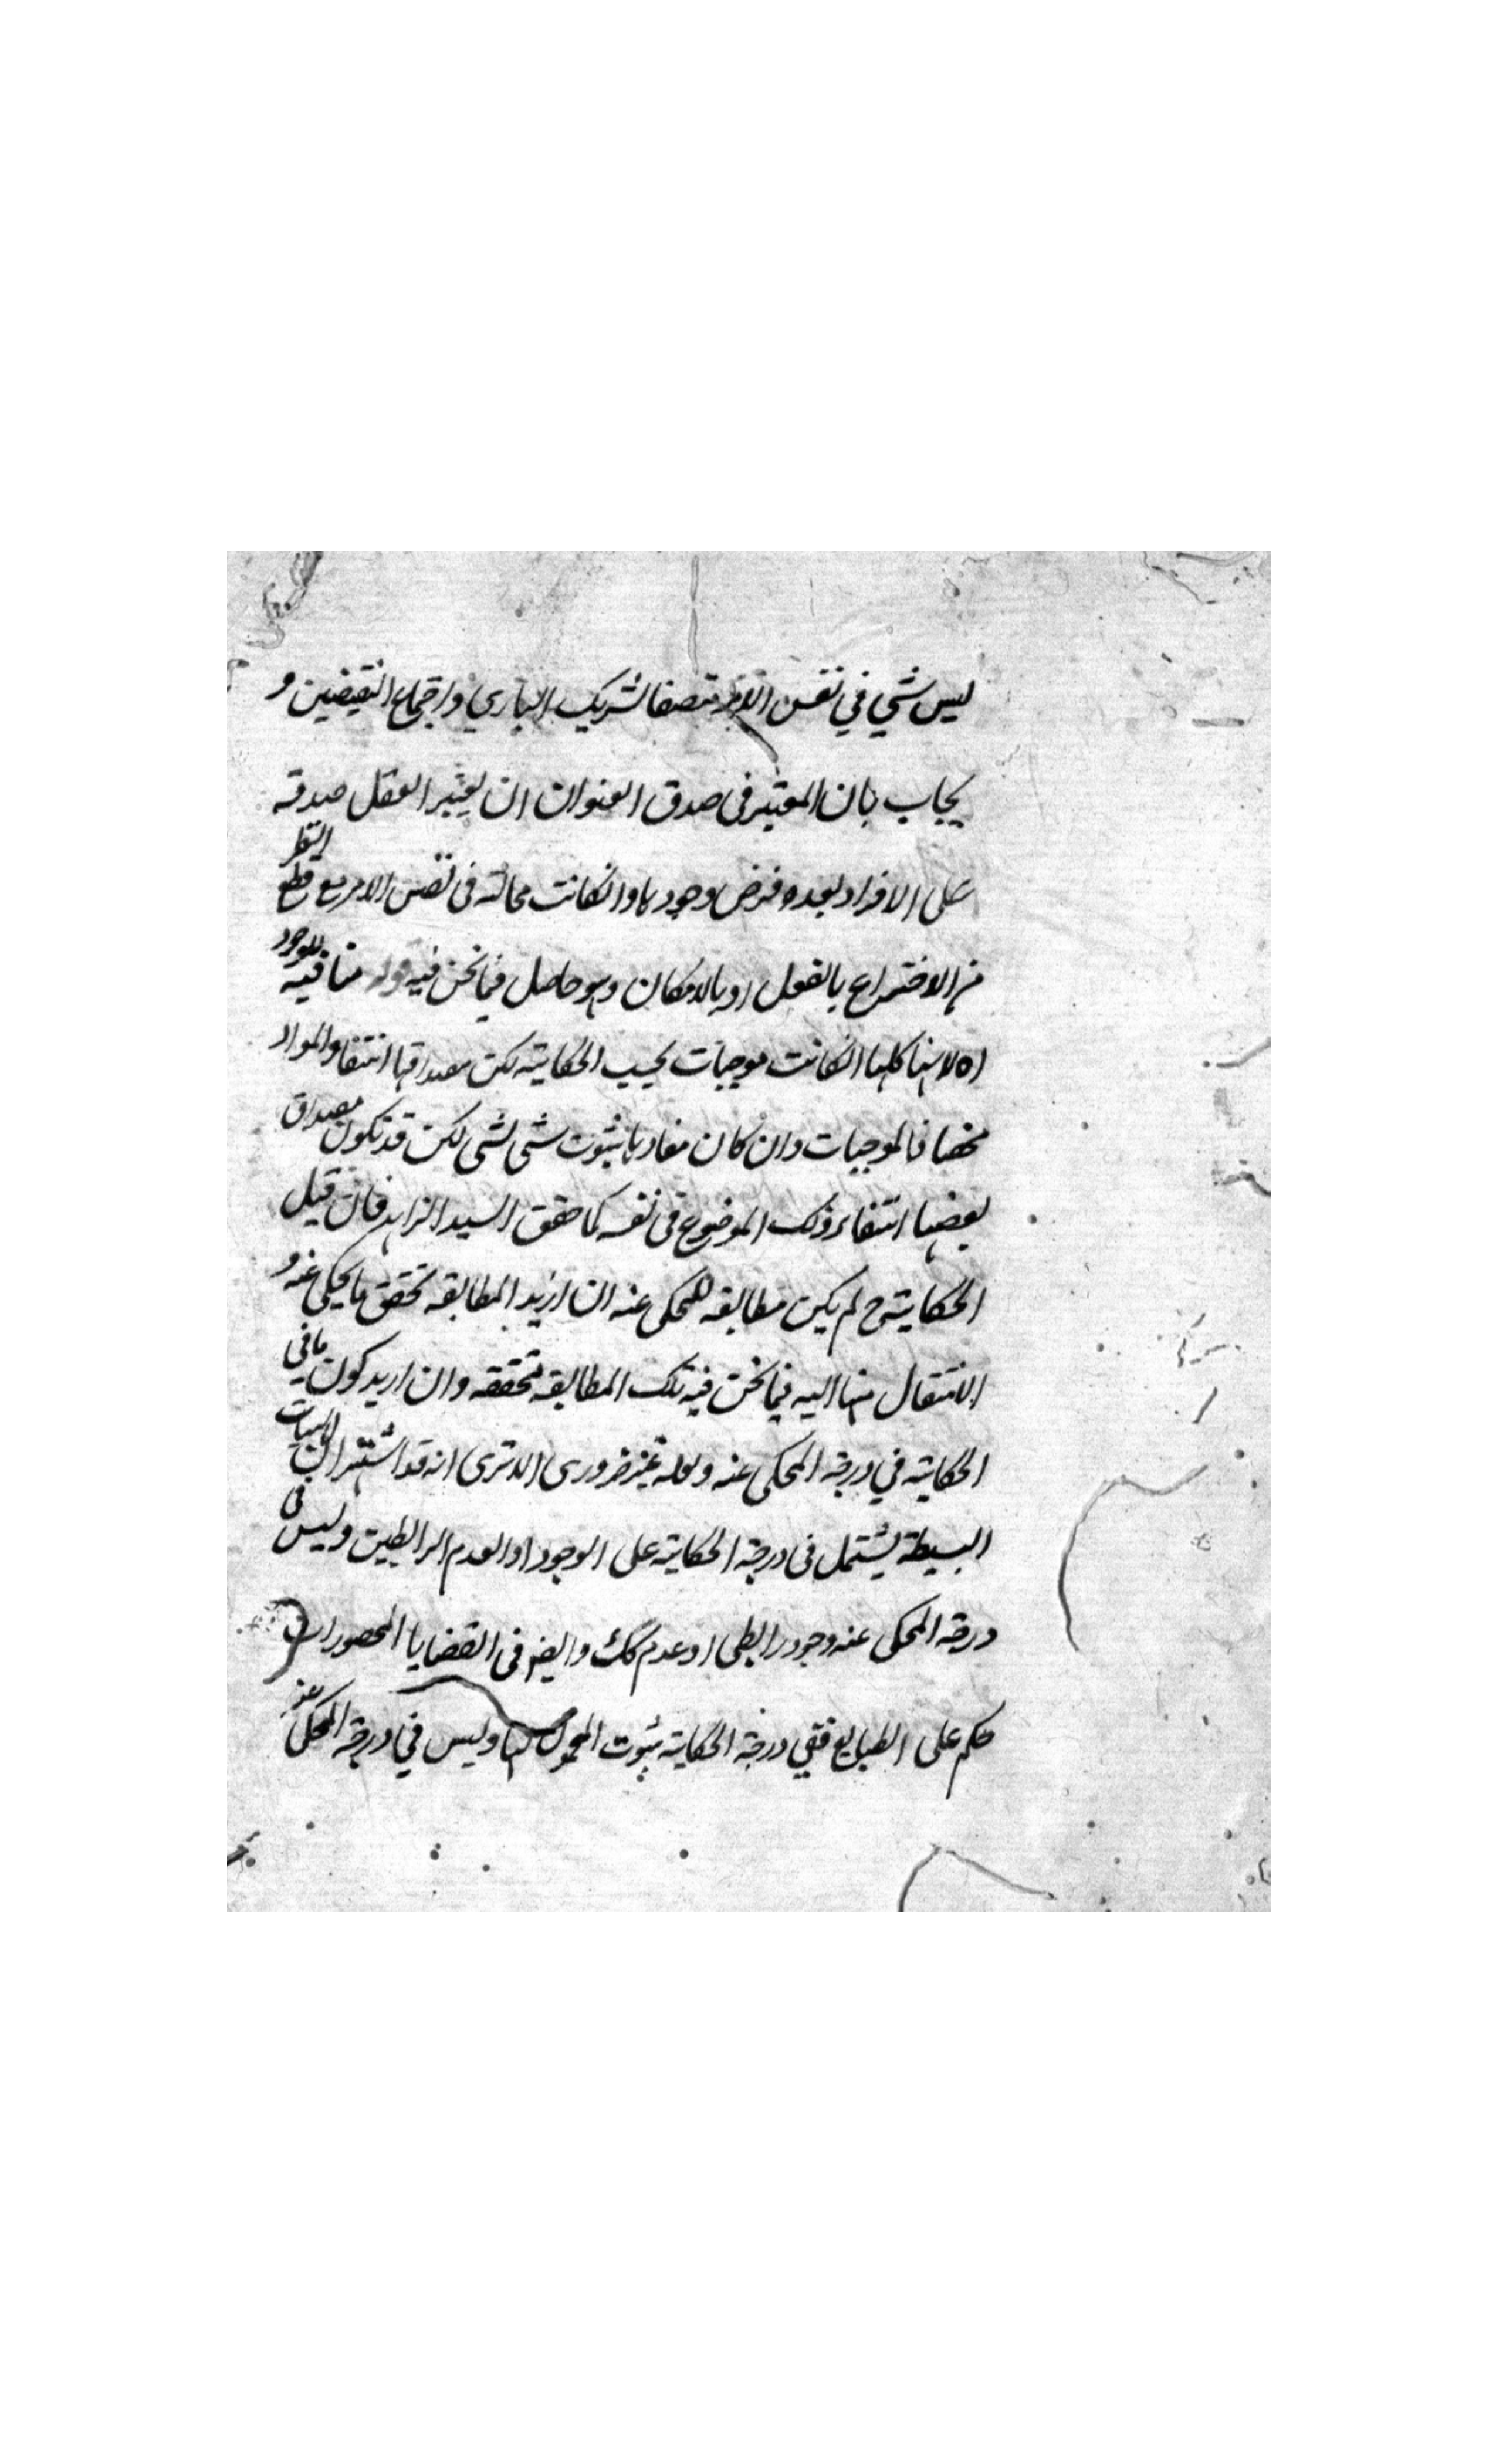 ليس شي في نفس الامر متصفا لشريك الباري واجتماع النقيضين و
يجاب بان المعتبر في صدق العنوان ان يعتبر العقل صدقه
على الافراد بعد فرض وجودها وانكانت محالة في نفس الامر مع قطع النظر
من الاختراع بالفعل او بالامكان وهو حاصل فيما نحن فيه قوله منافيه للوجود
اه لانها كلها انكانت موجبات بحسب الحكاية لكن مصداقها انتفاء المواد
فالموجبات وان كان مفادها ثبوت شي لشي لكن قد تكون مصداق
بعضها انتفاء ذلك الموضوع في نفسه كما حقق السيد الزاهد فان قيل
الحكاية ح لم يكن مطابقه للمحكى عنه ان اريد المطابقه تحقق ما يحكى عنه و
الانتقال منها اليه فيما نحن فيه تلك المطابقه متحققه وان اريد كون ما في
الحكاية في درجة المحكى عنه وله غير ضرورى الا ترى انه قد اشتهر ان الهليات
البسيطة يشتمل في درجة الحكاية على الوجود او العدم الرابطين وليس في
درجة المحكى عنه وجود رابطى او عدم كك وايضا في القضايا المحصورات
حكم على الطبايع ففي درجة الحكاية ثبوت المحمول لها وليس في درجة المحكى عنه